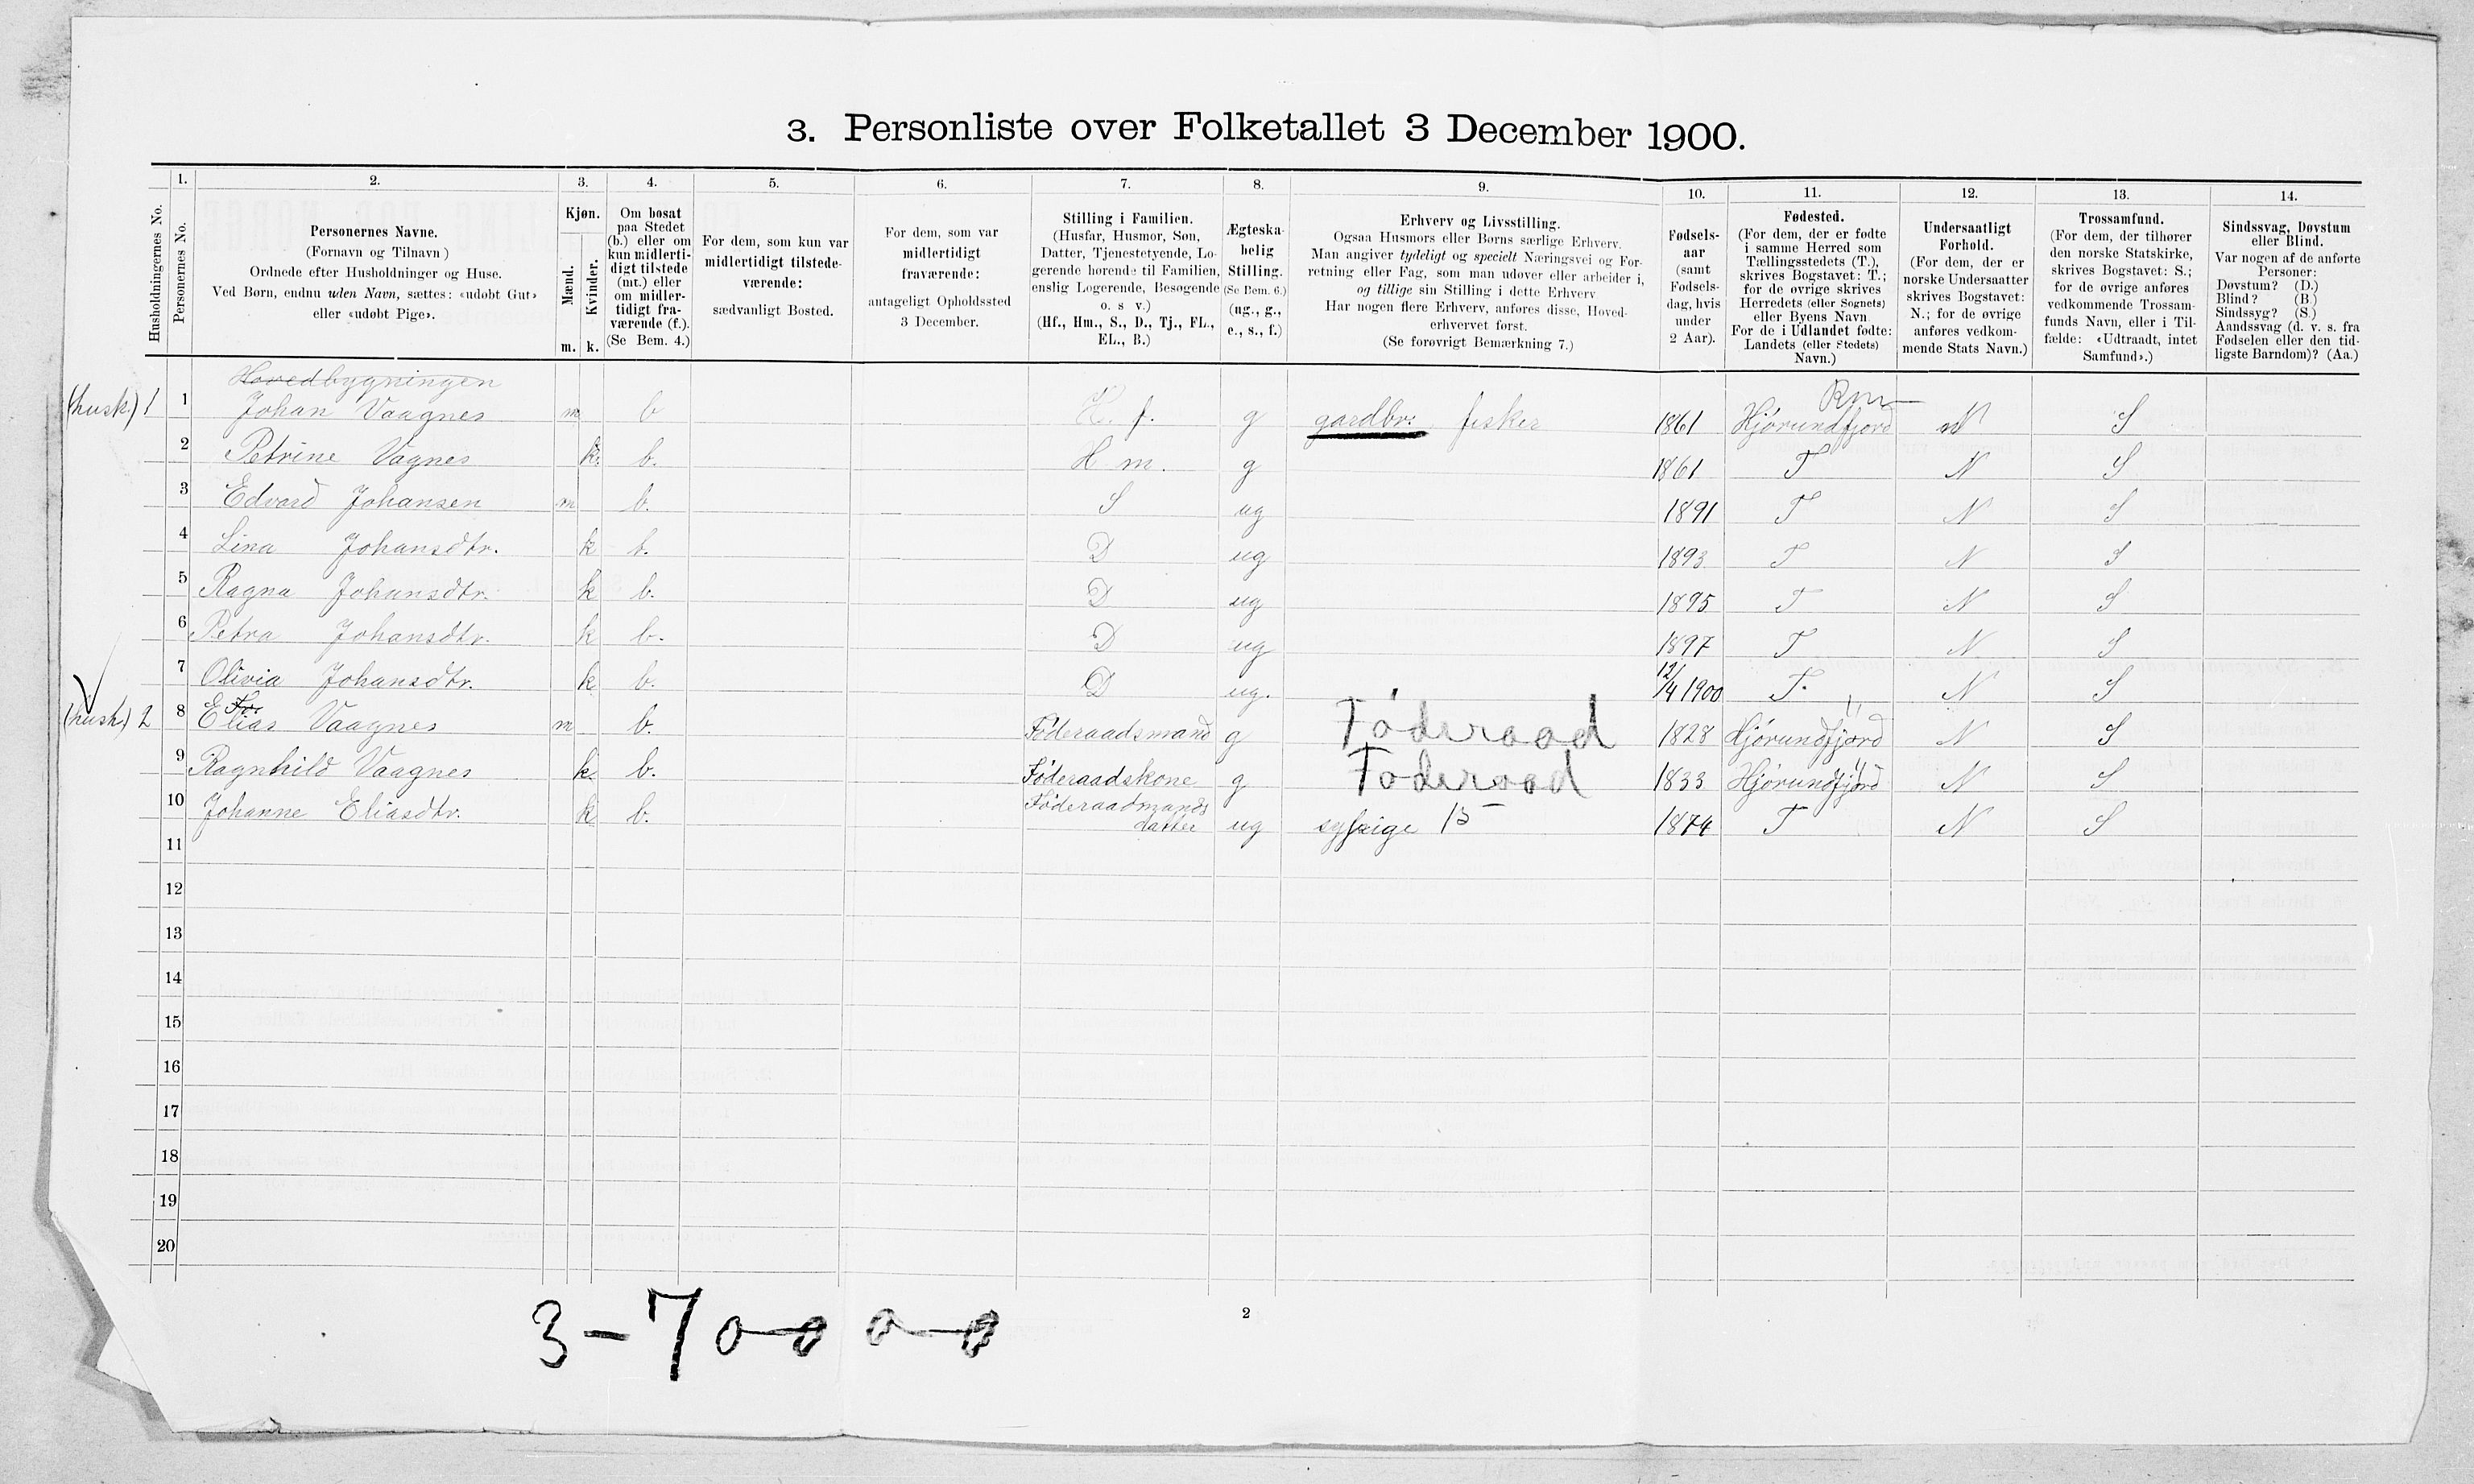 3. Personliste over Folketallet 3 December 1900.
Husholdningernes No.
1.
Personernes No.
2.
Personernes Navne.
(Fornavn og Tilnavn)
Ordnede efter Husholdninger og Huse.
Ved Børn, endnu uden Navn, sættes: «udøbt Gut»
eller «udøbt Pige».
3.
Kjøn.
Mænd.
Kvinder.
m. k.
4.
Om bosat
paa Stedet
(b.) eller om
kun midlerti-
digt tilstede
(mt.) eller
om midler-
tidigt fra-
værende (f.).
(Se Bem. 4.)
5.
For dem, som kun var
midlertidigt tilstede-
værende:
sædvanligt Bosted.
6.
For dem, som var
midlertidigt
fraværende:
antageligt Opholdssted
3 December.
7.
Stilling i Familien.
(Husfar, Husmor, Søn,
Datter, Tjenestetyende, Lo-
gerende hørende til Familien,
enslig Logerende, Besøgende
o. s v.)
(Hf., Hm., S., D., Tj., FL.,
EL., B.)
8.
Ægteska-
belig
Stilling.
(Se Bem. 6.)
(ug., g.,
e., s., f.)
9.
Erhverv og Livsstilling.
Ogsaa Husmors eller Børns særlige Erhverv.
Man angiver tydeligt og specielt Næringsvei og For-
retning eller Fag, som man udøver eller arbeider i,
og tillige sin Stilling i dette Erhverv
Har nogen flere Erhverv, anføres disse, Hoved-
erhvervet først.
(Se forøvrigt Bemærkning 7.)
10.
Fødsels-
aar
(samt
Fødsels-
dag, hvis
under
2 Aar).
11.
Fødested.
(For dem, der er fødte
i samme Herred som
Tællingsstedets (T.),
skrives Bogstavet: T.;
for de øvrige skrives
Herredets (eller Sognets)
eller Byens Navn
For de i Udlandet fødte:
Landets (eller Stedets)
Navn.)
12.
Undersaatligt
Forhold.
(For dem, der er
norske Undersaatter
skrives Bogstavet:
N.; for de øvrige
anføres vedkom-
mende Stats Navn.)
13.
Trossamfund.
(For dem, der tilhører
den norske Statskirke,
skrives Bogstavet: S.;
for de øvrige anføres
vedkommende Trossam-
funds Navn, eller i Til-
fælde: «Udtraadt, intet
Samfund».)
14.
Sindssvag, Døvstum
eller Blind.
Var nogen af de anførte
Personer:
Døvstum? (D.)
Blind? (B.)
Sindssyg? (S.)
Aandssvag (d. v. s. fra
Fødselen eller den tid-
ligste Barndom)? (Aa.)
Hovedbygningen
(husk.) 1 1 Johan Vaagnes m b H. f. g gardbr. fisker 1861 Hjørundfjord N S
2 Petrine Vagnes k. b. H m. g 1861 T N S
3 Edvard Johansen m b. S ug 1891 T N S
4 Lina Johansdtr. k b. D ug 1893 T N S
5 Ragna Johansdtr. k b. D ug 1895 T N S
6 Petra Johansdtr. k b. D ug 1897 T N S
7 Olivia Johansdtr. k b. D ug. 12/4 1900 T. N S
(husk.) 2 8 Elias Vaagnes m b. Føderaadsmand g Føderaad 1828 Hjørundfjord N S
9 Ragnhild Vaagnes k. b. Føderaadskone g Føderaad 1833 Hjørundfjord N S
10 Johanne Eliasdtr. k b. Føderaadmands
datter ug sypige 15 1874 T N S
11
12
13
14
15
16
17
18
19
20
3 - 7 0 - 0 0 - 0
2